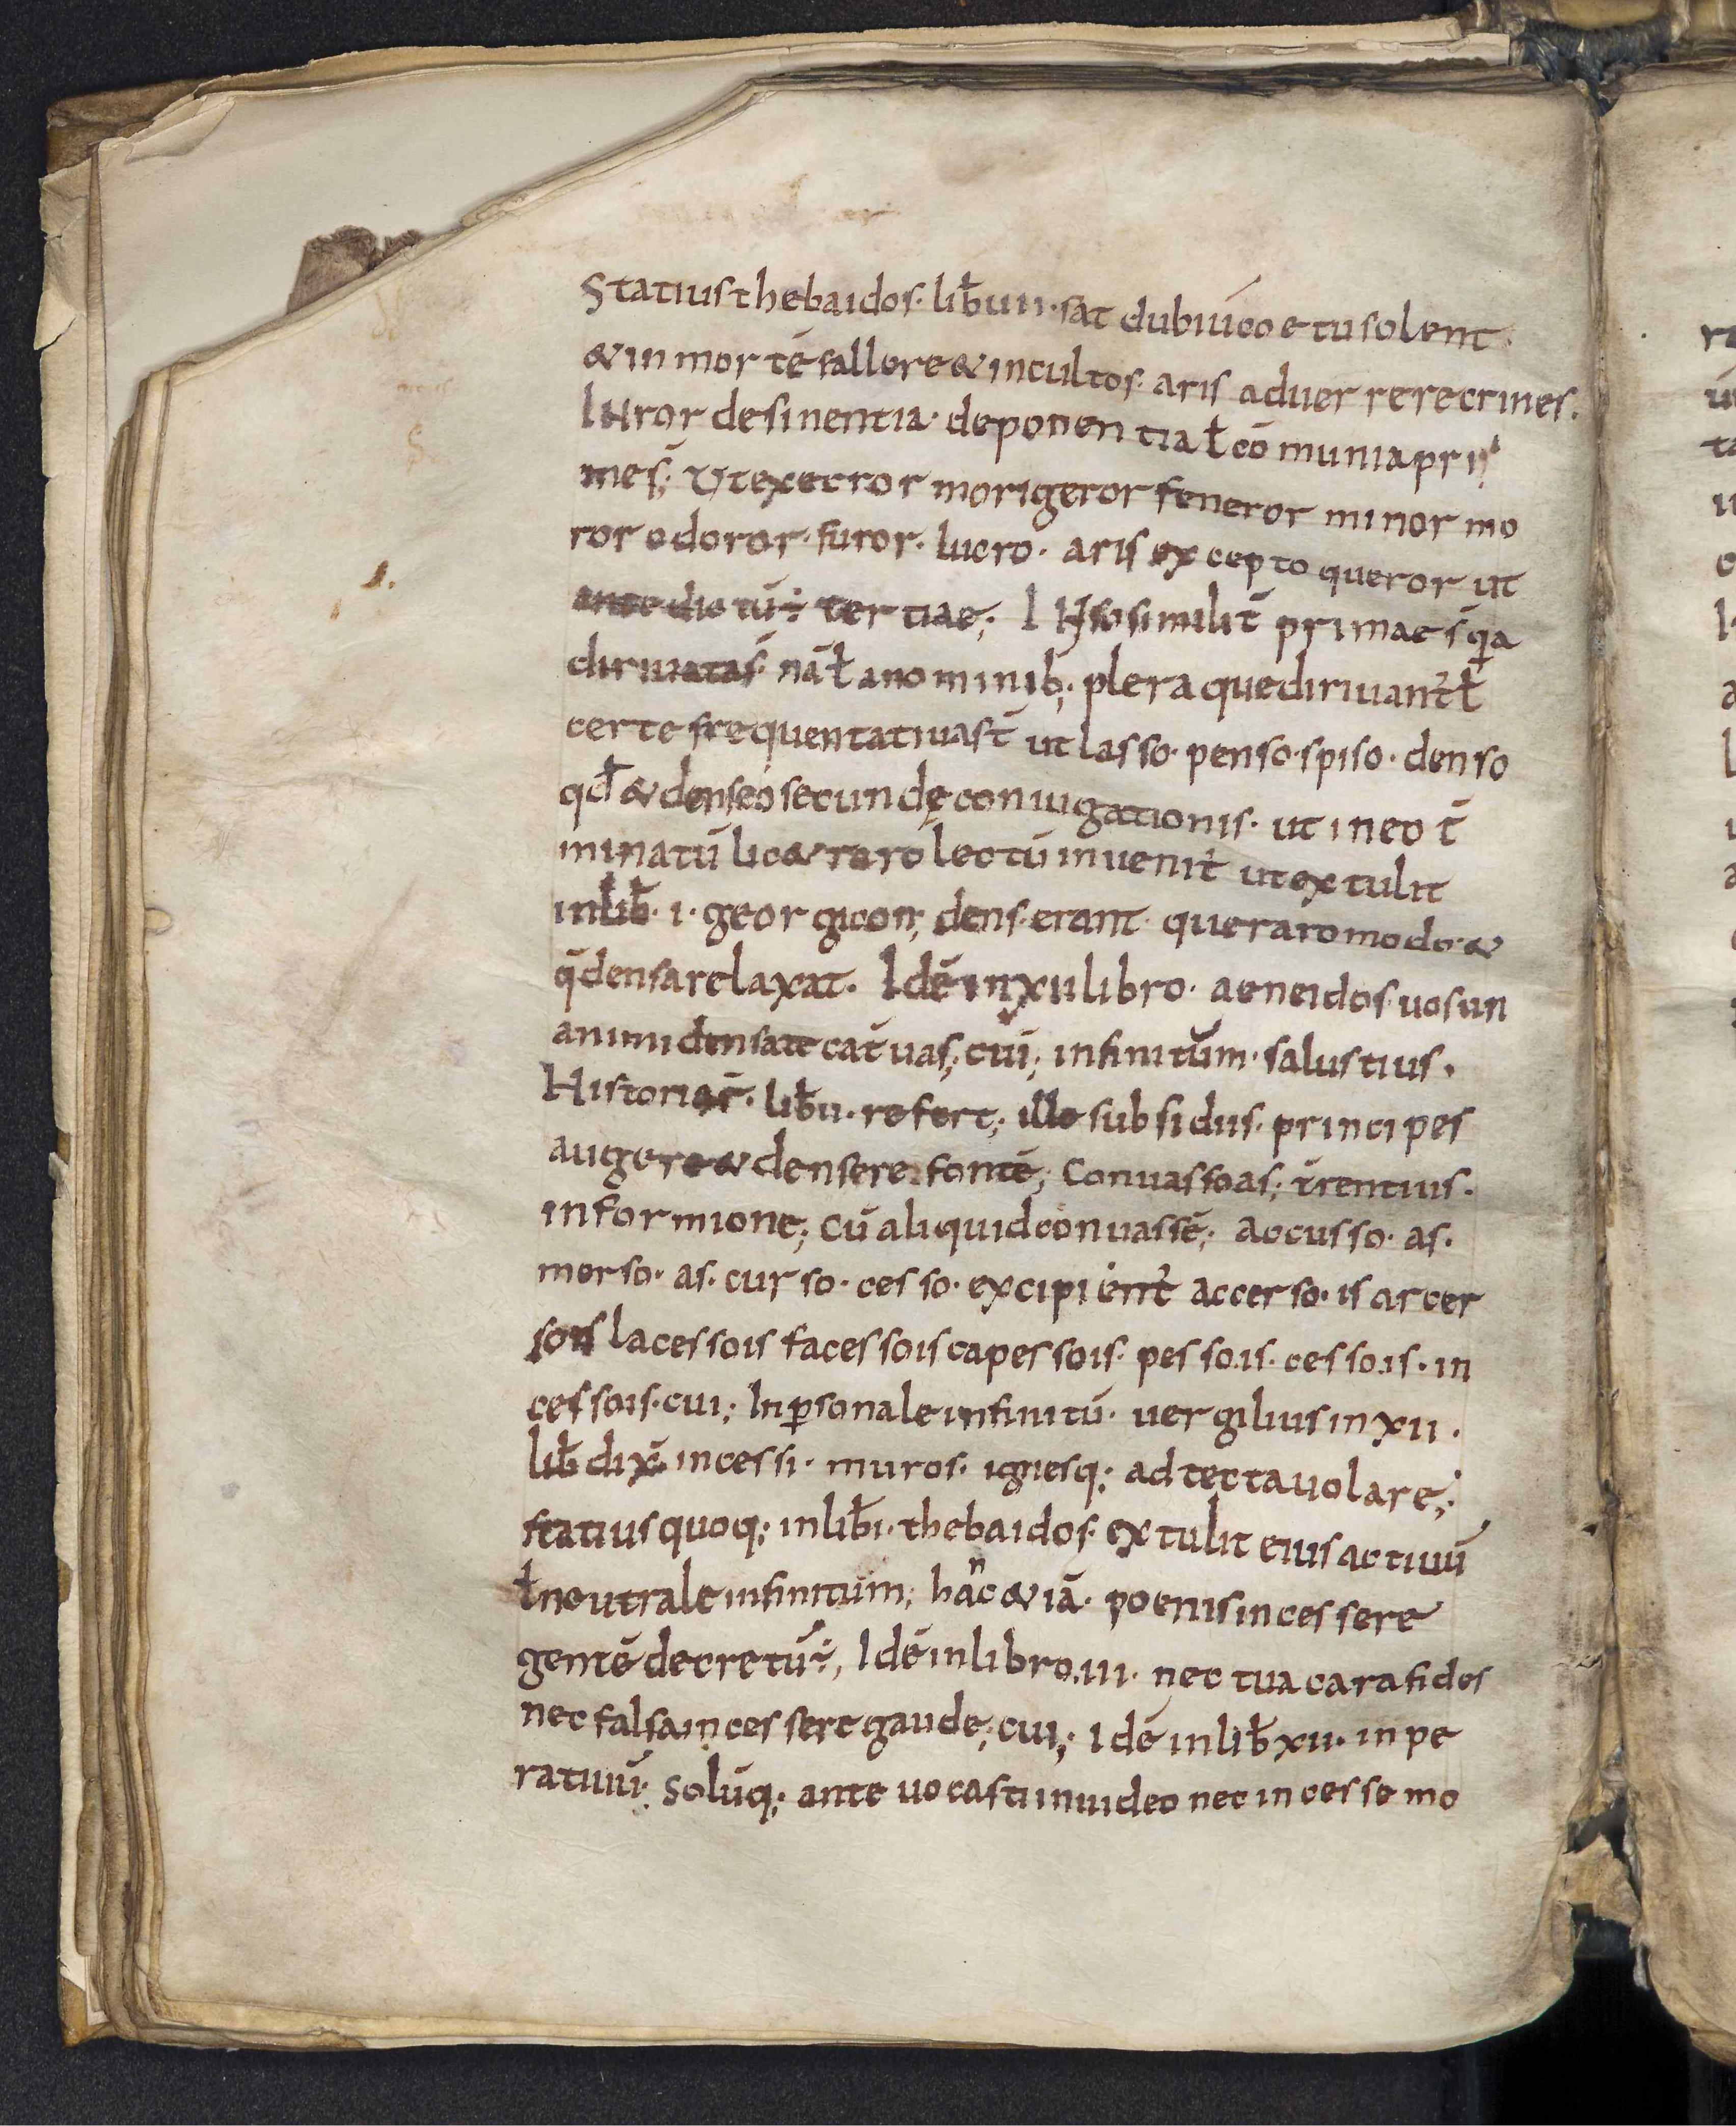 Statius thebaidos· lib̄ uii· sat dubiū coetu solent
& in mortē fallere & incultos· aris aduerrere crines.
IN ror desinentia· deponentia ł cōmunia pri
mę s̄; Ut execror morigeror feneror minor mo
ror odoror· furor· lucro· aris excepto queror ut
ante dictū ÷ tertiae; IN so similit̄ primae s̄ q̄a
diriuatas· nā ł a nominib; pleraque diriuant̄ ł
certe frequentatiua st̄ ut lasso· penso· spiso· denso
qđ & denseo secundę coniugationis· ut in eo t̄
minatū lic& raro lectū inuenit̄ ut extulit
in lib̄· i· georgicon; denserant que raro modo· &
q̄ densa relaxat· Idē in xii libro· aeneidos· uos un
animi densate cat̄uas; cui; infinitum· salustius·
Historiar̄· lib̄ u· refert; ille subsidiis· principes
augere & densere frontē; Conuasso as; t̄rentius·
in formione; cū aliquid conuassē; accusso· as·
morso· as· curso· cesso· excipient̄ accerso· is arcer
so is lacesso is facesso is capesso is· pesso· is· cesso· is· in
cesso is· cui; Inp̄sonale infinitū· uergilius in xii·
lib̄ dix̄ incessi· muros· ignesq; ad tecta uolare;
statius quoq; in lib̄ i· thebaidos· extulit eius actiuū
ł neutrale infinitum; hanc & iā· poenis incessere
gentē decretū ÷; Idē in libro· iii· nec tua cara fides
nec falsa incessere gaude; cui; Idē in lib̄ xii· inpe
ratiuū; Solūq; ante uocasti inuideo nec incesse mo